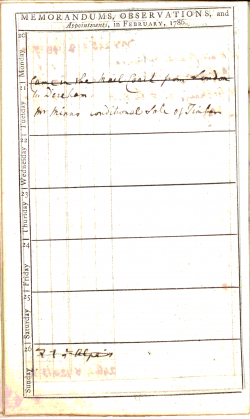 MEMORANDUMS, OBSERVATIONS, and
Appointments, in FEBRUARY, 1786.
20 Monday
Came in the Mail Coach from London
21 Tuesday
to Dereham
conditional Sale of Timber
22 Wednesday
23 Thursday
24 Friday
25 Saturday
26 Sunday